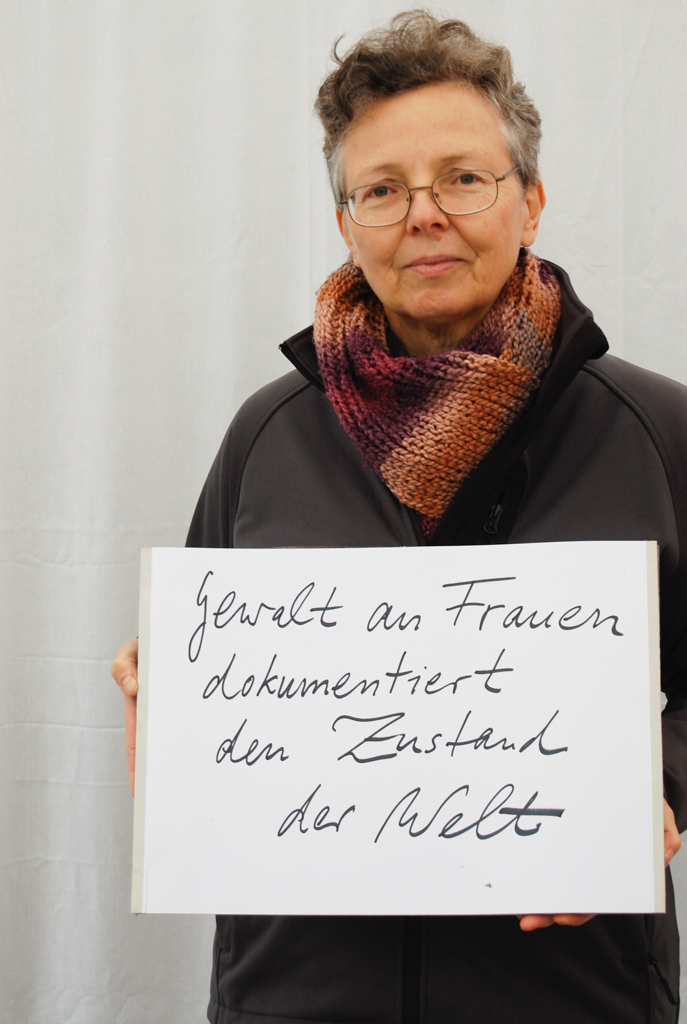 Gewalt an Frauen
dokumentiert
den Zustand
der Welt